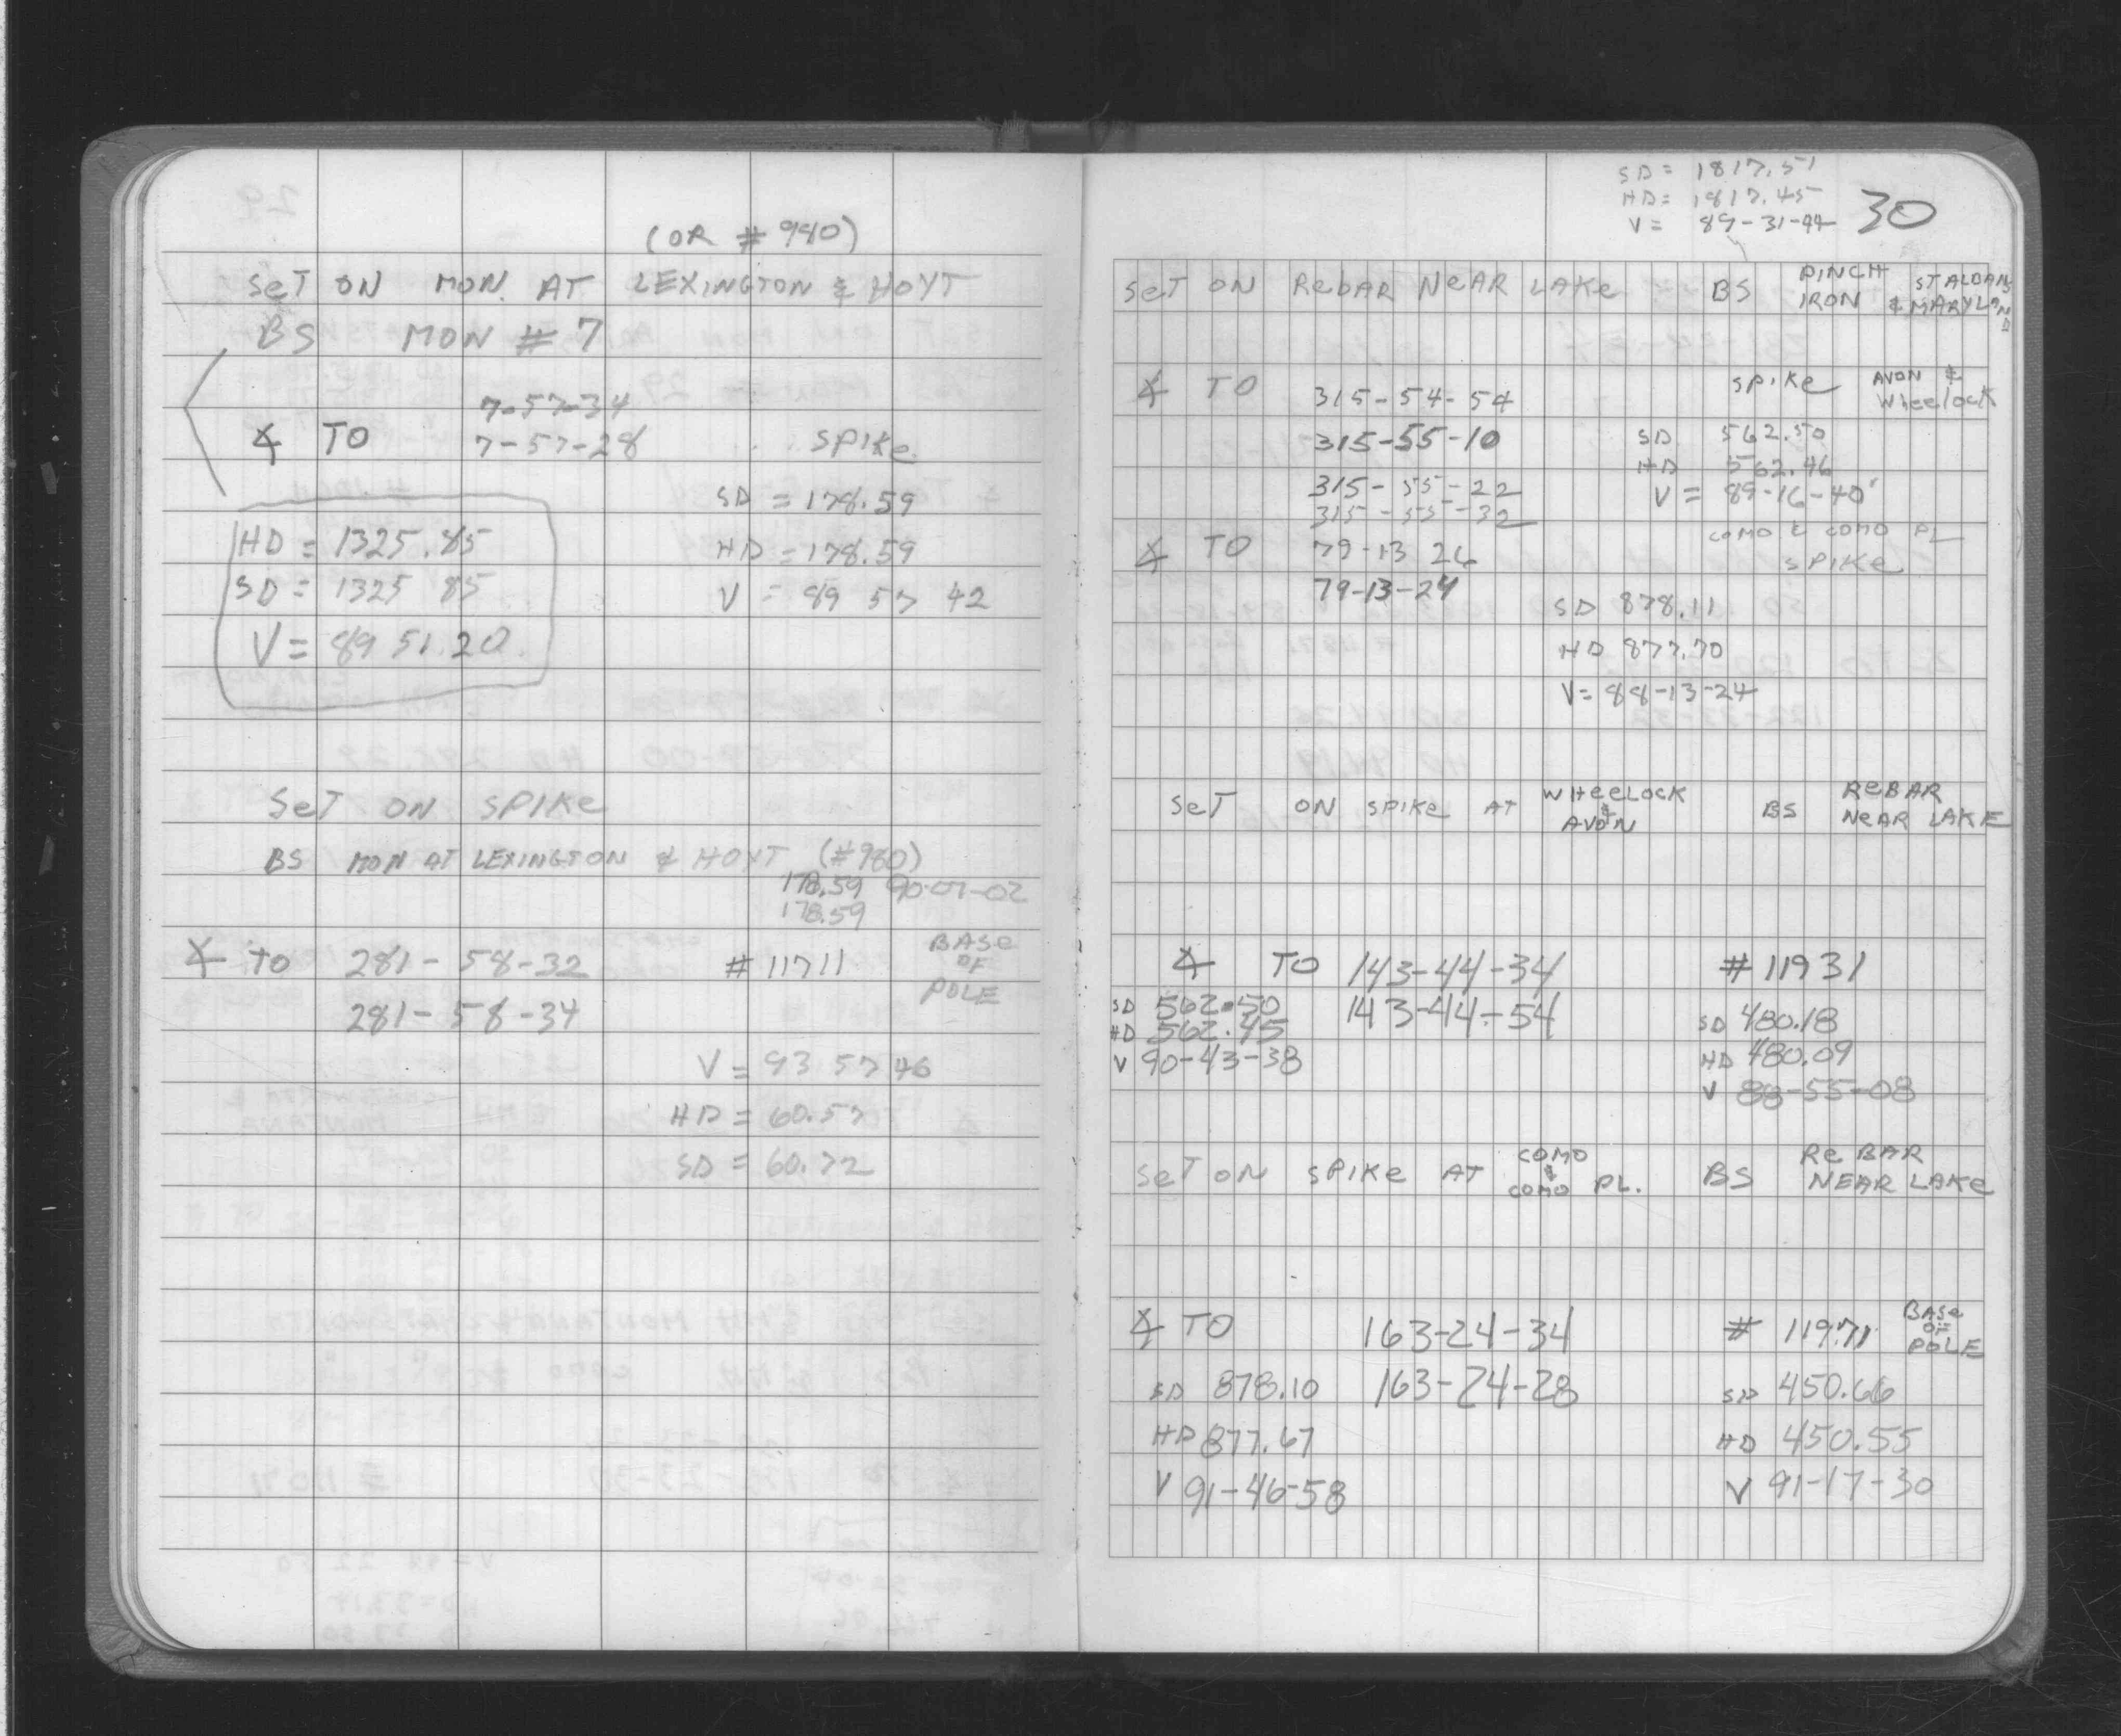 (OR # 980)
SET ON MON. AT LEXINGTON & HOYT
BS MON # 7
7-57-34
∡ TO 7-57-28 SPIKE
SD = 178.59
HD = 1325.85 HD = 178.59
SD = 1325 85 V = 89 57 42
V = 89 51.20
SET ON SPIKE
BS MON AT LEXINGTON & HOYT (#980)
178.59 90-07-02
178.59
∡ TO 281-58-32 # 11711 BASE OF POLE
281-58-34
V = 93 57 46
HD = 60.57
SD = 60.72
SD = 1817.51
HD = 1817.45
V = 89-31-44
30
SET ON REBAR NEAR LAKE BS PINCH IRON ST ALBANS & MARYLAND
∡ TO 315-54-54 SPIKE AVON & WHEELOCK
315-55-10 SD 562.50
315-55-22 HD 562.46
315-55-32 V = 89-16-40
COMO & COMO PL
∡ TO 79-13 26 SPIKE
79-13-24 SD 878.11
HD 877.70
V = 88-13-24
SET ON SPIKE AT WHEELOCK & AVON BS REBAR NEAR LAKE
∡ TO 143-44-34 # 11931
SD 562.50 143-44-54 SD 480.18
HD 562.45 HD 480.09
V 90-43-38 V 88-55-08
SET ON SPIKE AT COMO & COMO PL. BS REBAR NEAR LAKE
∡ TO 163-24-34 # 11971 BASE OF POLE
SD 878.10 163-24-28 SD 450.66
HD 877.67 HD 450.55
V 91-46-58 V 91-17-30